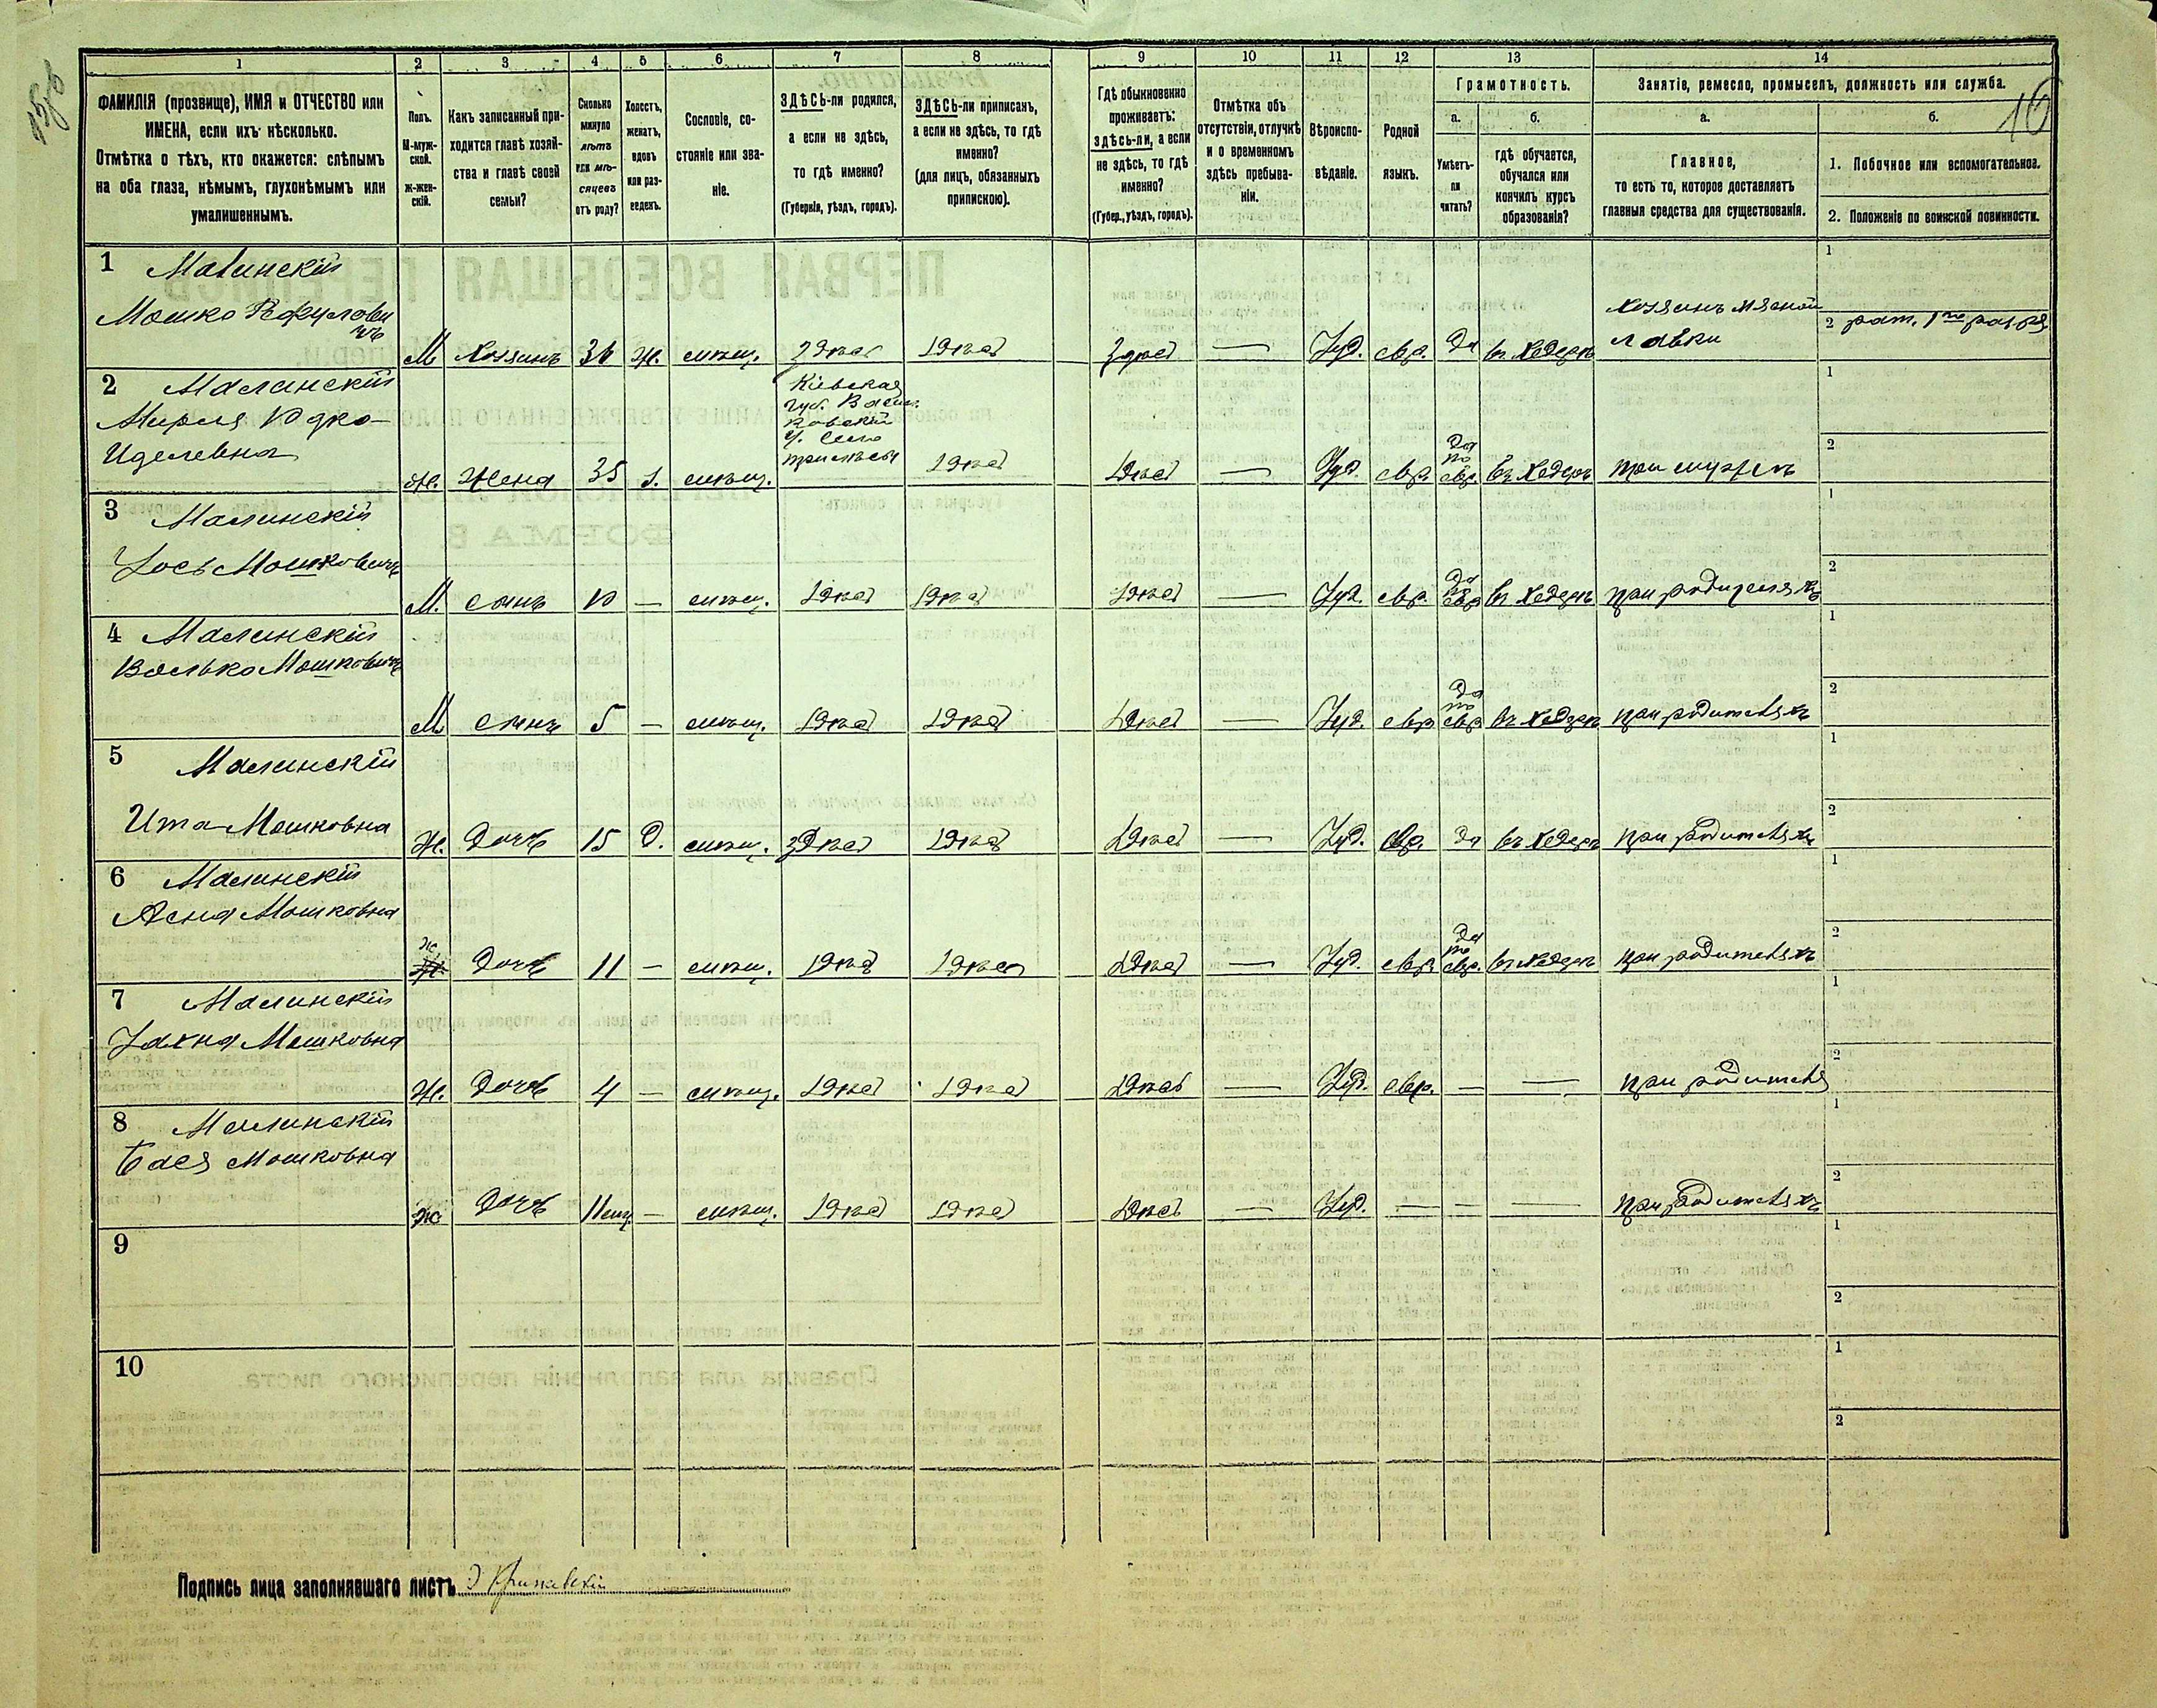 1 2 3 4 5 6 7 8 9 10 11 12 13 14
ФАМИЛІЯ (прозвище), ИМЯ и ОТЧЕСТВО или
ИМЕНА, если ихъ нѣсколько.
Отмѣтка о тѣхъ, кто окажется: слѣпымъ
на оба глаза, нѣмымъ, глухонѣмымъ или
умалишеннымъ.
Полъ.
М-муж-
ской.
ж-жен-
скій.
Какъ записанный при-
ходится главѣ хозяй-
ства и главѣ своей
семьи?
Сколько
минуло
лѣтъ
или мѣ-
сяцевъ
отъ роду?
Холостъ,
женатъ,
вдовъ
или раз-
веденъ.
Сословіе, со-
стояніе или зва-
ніе.
ЗДѢСЬ-ли родился,
а если не здѣсь,
то гдѣ именно?
(Губернія, уѣздъ, городъ).
ЗДѢСЬ-ли приписанъ,
а если не здѣсь, то гдѣ
именно?
(для лицъ, обязанныхъ
припискою).
Гдѣ обыкновенно
проживаетъ:
здѣсь-ли, а если
не здѣсь, то гдѣ
именно?
(Губер., уѣздъ, городъ).
Отмѣтка объ
отсутствіи, отлучкѣ
и о временномъ
здѣсь пребыва-
ніи.
Вѣроиспо-
вѣданіе.
Родной
языкъ.
Грамотность.
а.
Умѣетъ-
ли
читать?
б.
гдѣ обучается,
обучался или
кончилъ курсъ
образованія?
Занятіе, ремесло, промыселъ, должность или служба.
а.
Главное,
то есть то, которое доставляетъ
главныя средства для существованія.
б.
16
1. Побочное или вспомогательное.
2. Положеніе по воинской повинности.
1 Малинскій
Мошко
М Хозяинъ 36 ж. мѣщ. Здѣсь Здѣсь Здѣсь — Іуд. евр. Да въ Хедерѣ
Хозяинъ мясной
лавки
1
2 рат. 1го разр
2 Малинскій
Мирля
Иделевна
Ж. Жена 35 з. мѣщ.
Кіевская
губ. Васил.
ковскій
у. село
Здѣсь Здѣсь — Іуд. евр.
Да
по
евр. въ Хедерѣ при мужѣ
1
2
3 Малинскій
Іось Мошковичъ
М. сынъ 10 — мѣщ. Здѣсь Здѣсь Здѣсь — Іуд. евр.
Да
по
евр въ Хедерѣ при родителяхъ
1
2
4 Малинскій
Волько Мошковичъ
М сынъ 5 — мѣщ. Здѣсь Здѣсь Здѣсь — Іуд. евр
Да
по
евр въ Хедерѣ при родителяхъ
1
2
5 Малинскій
Ита Мошковна
Ж. Дочь 15 Д. мѣщ. Здѣсь Здѣсь Здѣсь — Іуд. евр. Да въ Хедерѣ при родителяхъ
1
2
6 Малинскій
Асна Мошковна
Ж Дочь 11 — мѣщ. Здѣсь Здѣсь Здѣсь — Іуд. евр
Да
по
евр. въ Хедерѣ при родителяхъ
1
2
7 Малинскій
Мошковна
Ж. Дочь 4 — мѣщ. Здѣсь Здѣсь Здѣсь — Іуд. евр. — — при родителя
1
2
8 Малинскій
Бася Мошковна
Ж Дочь 11 мѣщ. Здѣсь Здѣсь Здѣсь — Іуд. — — — при родителяхъ
1
2
9
1
2
10
1
2
Подпись лица заполнявшаго листъ